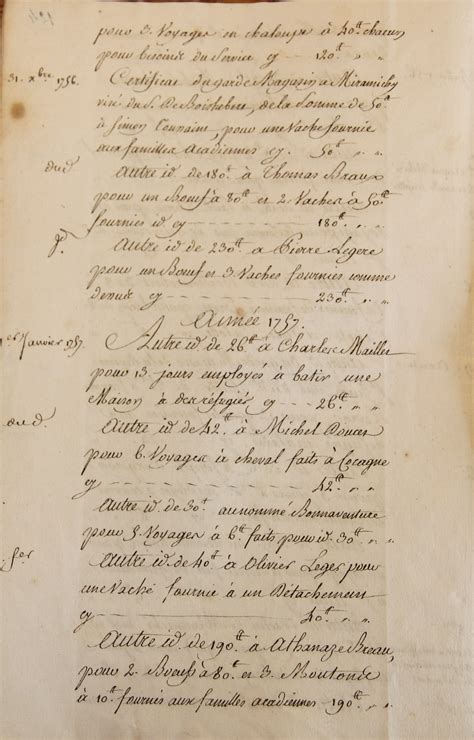 pour 3. Voyages en chaloupe à 40ᵗᵗ chacun
pour besoins du Service cy - - - 120ᵗᵗ " "
31. xbre 1756. Certificat du garde Magazin à Miramichy
visé du S. De Boishebert, de la Somme de 50ᵗᵗ
à Simon pour une Vache fournie
aux familles acadiennes cy. 50ᵗᵗ. " "
dud. Autre id. de 180ᵗᵗ à Thomas Braux
pour un Boeuf à 80ᵗᵗ et 2. Vaches à 50ᵗᵗ
fournies id. cy - - - 180ᵗᵗ. " "
Autre id. de 230ᵗᵗ à Pierre Legere
pour un Boeuf et 3. Vaches fournies comme
cy - - - 230ᵗᵗ. " "
Année 1757.
1er Janvier 1757. Autre id. de 26ᵗᵗ à Charles Maillet
pour 13. jours employés à batir une
Maison à des réfugiés cy - - 26ᵗᵗ " "
dud. Autre id. de 42ᵗᵗ à Michel Doucet
pour 6. Voyages à cheval faits à Cocagne
cy - - - 42ᵗᵗ " "
Autre id. de 30ᵗ. au nommé Bonnaventure
pour 5. Voyages à 6ᵗᵗ faits pour id. 30ᵗᵗ " "
Autre id. de 40ᵗ. à Olivier Leger pour
une Vache fournie à un Détachement
cy - - - 40ᵗᵗ " "
Autre id. de 190ᵗᵗ à Athanaze Breau,
pour 2. Boeufs à 80ᵗᵗ et 3. Moutons
à 10ᵗᵗ fournis aux familles acadiennes 190ᵗᵗ " "